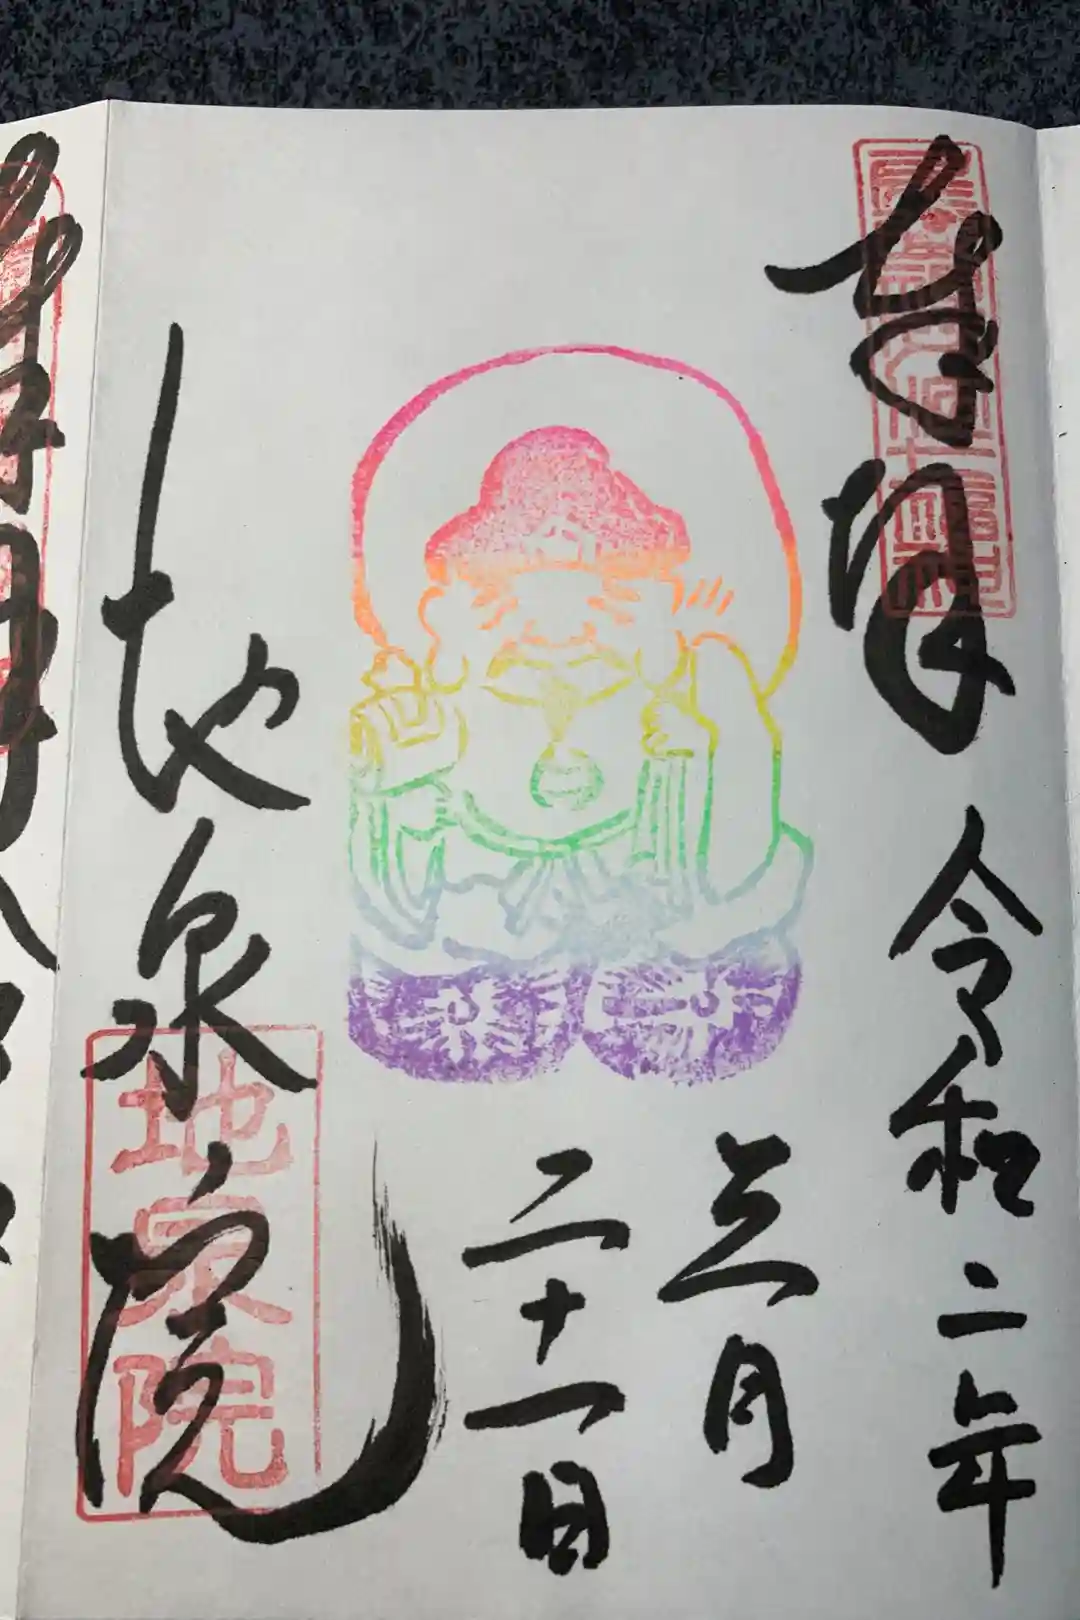 奉拝
令和二年
五月
二十一日
地泉院
地泉院